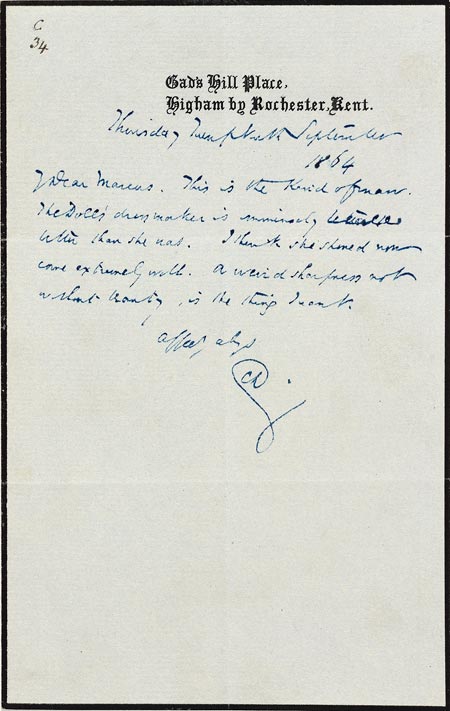 C
34
Gad's Hill Place,
Higham by Rochester, Kent.
Thursday September
1864
My Dear Marcus. This is the kind of man.
The Doll's dressmaker is immensely
better than she was. I think she should now
come extremely well. A weird sharpness not
without beauty, is the thing I want.
CD